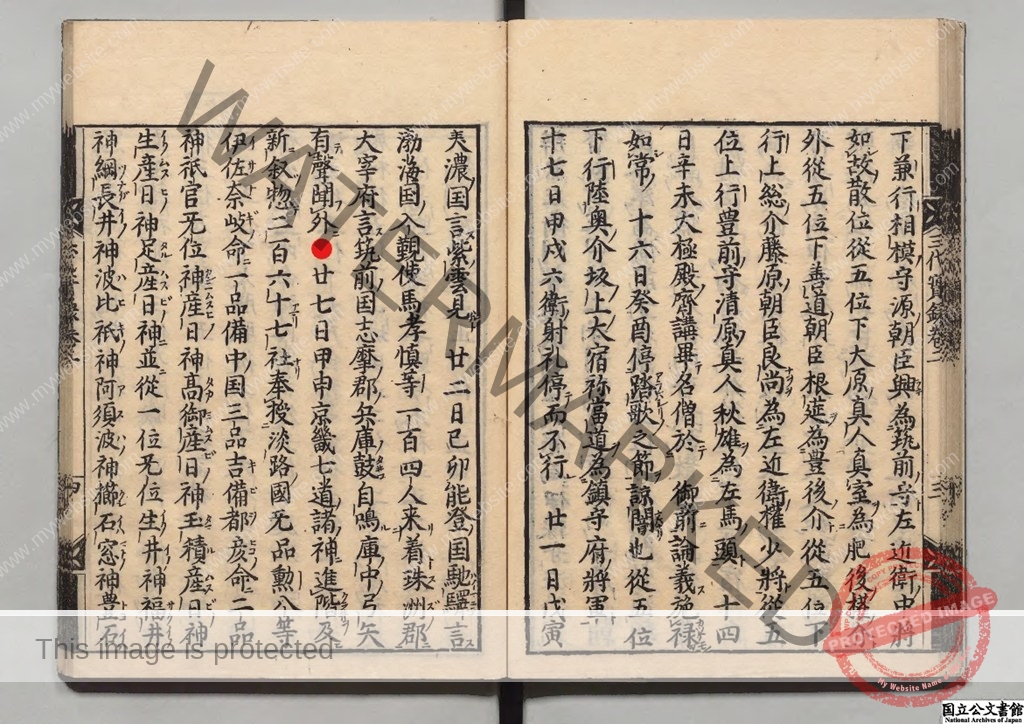 下兼行相模守源朝臣興為筑前守左近衛中将
如故散位從五位下大原真人真室為肥後権介
外從五位下善道朝臣根莚為豊後介從五位下
行上総介藤原朝臣良尚為左近衛權少將從五
位上行豊前守清原真人秋雄為左馬頭 十四
日辛未大極殿齊講畢名僧於 御前論義施禄
如常 十六日癸酉停踏歌之節諒闇也從五位
下行陸奥介坂上大宿祢當道為鎮守府將軍
十七日甲戌六衛射礼停而不行 廿一日戊寅
三代實録卷二
三
美濃国言紫雲見 廿二日己卯能登国馳驛言
渤海国入覲使馬孝慎等一百四人来着珠洲郡
大宰府言筑前国志摩郡兵庫鼓自鳴庫中弓矢
有聲聞外 廿七日甲申京畿七道諸神進階及
新叙惣二百六十七社奉授淡路國无品勲八等
伊佐奈岐命一品備中国三品吉備都彦命二品
神祇官无位神産日神髙御産日神玉積産日神
生産日神足産日神並從一位无位生井神福井
神綱長井神波比祇神阿須波神櫛石窓神豊石
四
WATERMARKED
www.mywebsite.com
COPY PROTECTED
PROTECTED IMAGE
My Website Name
This image is protected
国立公文書館
National Archives of Japan